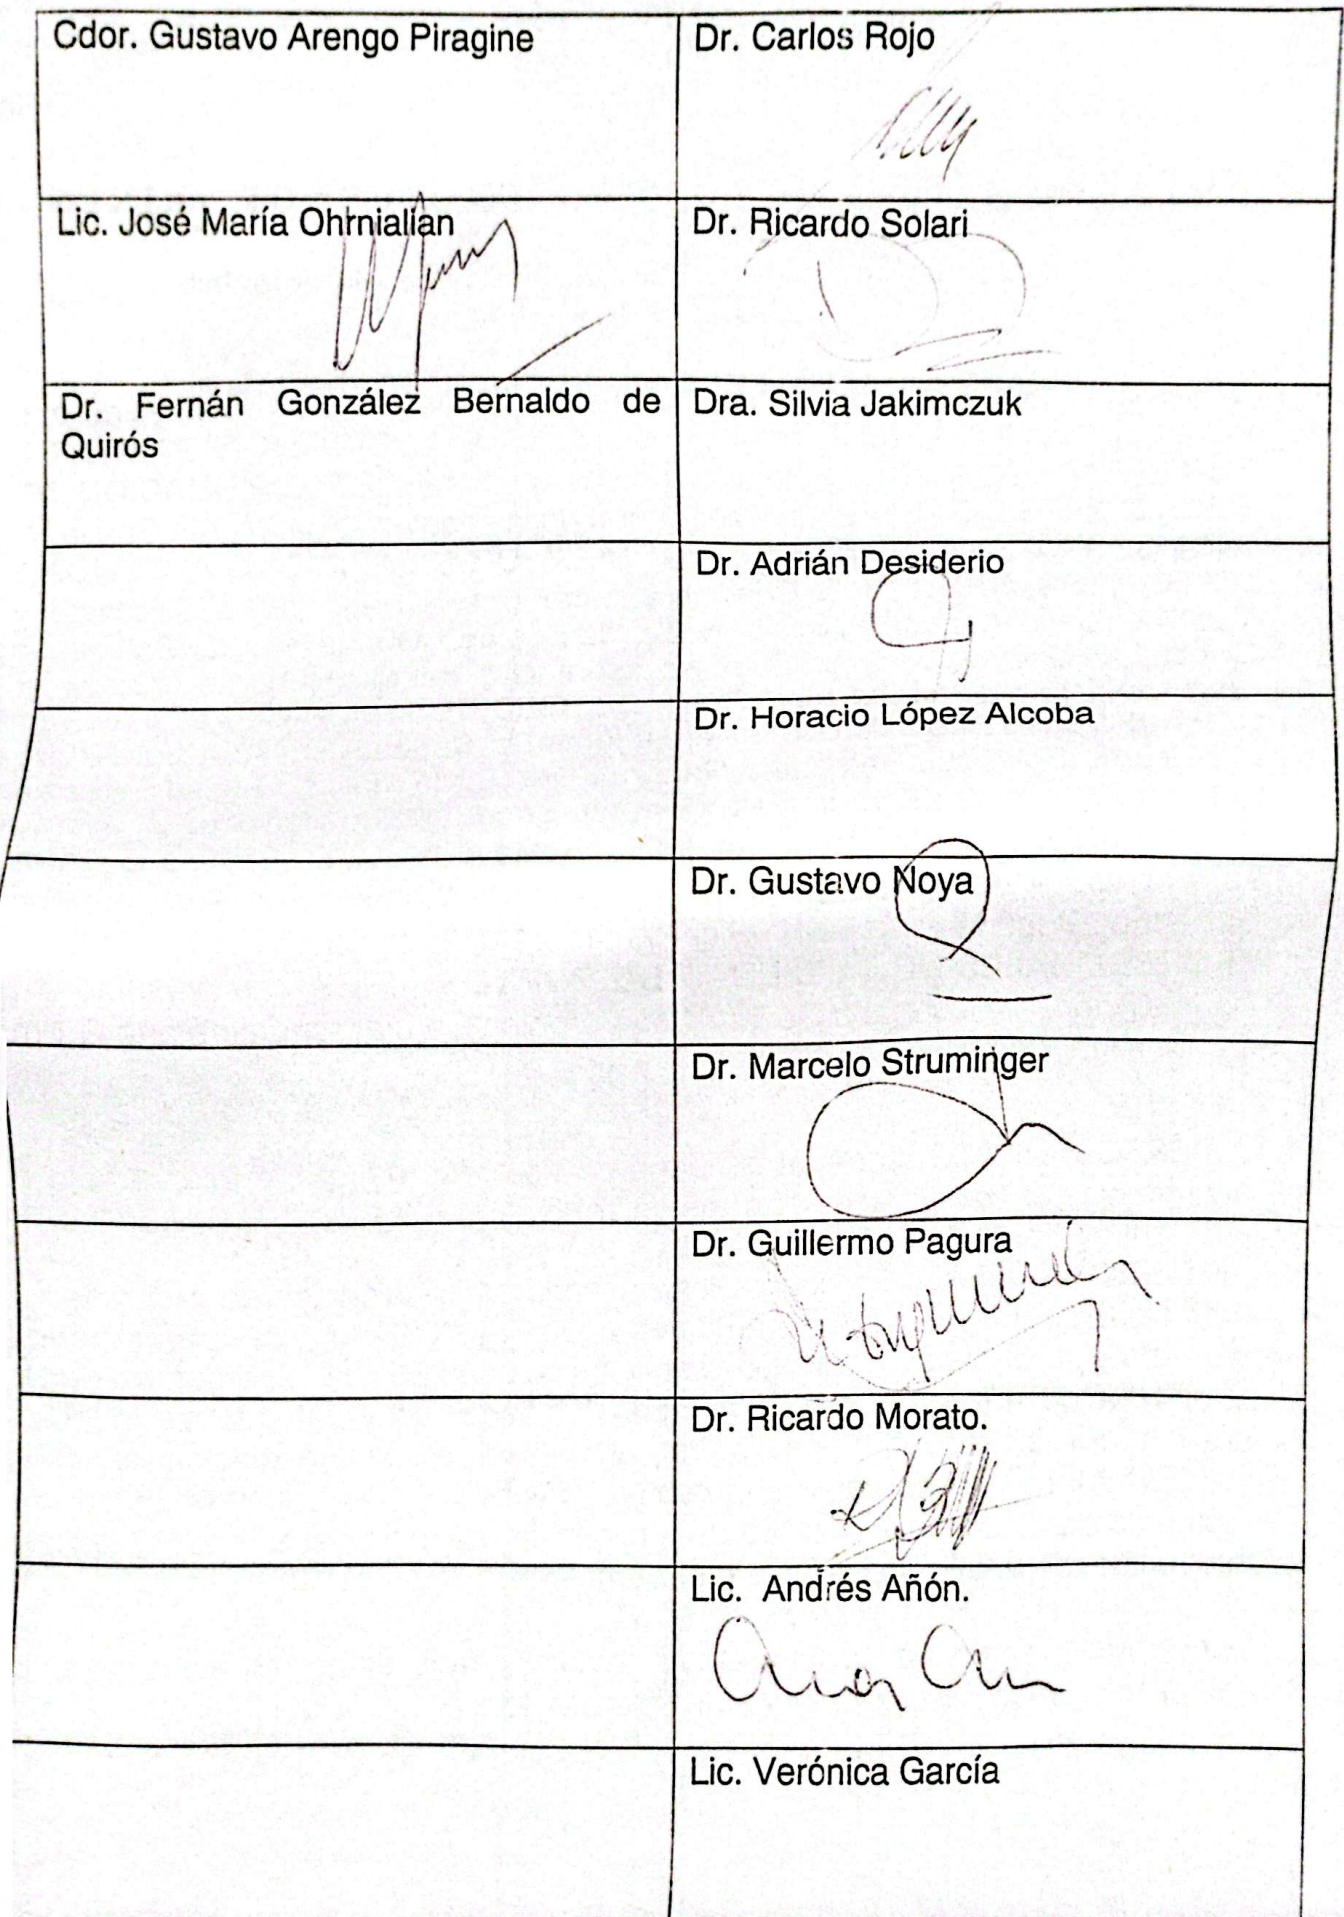 Cdor. Gustavo Arengo Piragine
Dr. Carlos Rojo
Lic. José María Ohrnialian
Dr. Ricardo Solari
Dr. Fernán González Bernaldo de
Quirós
Dra. Silvia Jakimczuk
Dr. Adrián Desiderio
Dr. Horacio López Alcoba
Dr. Gustavo Noya
Dr. Marcelo Struminger
Dr. Guillermo Pagura
Dr. Ricardo Morato.
Lic. Andrés Añón.
Lic. Verónica García